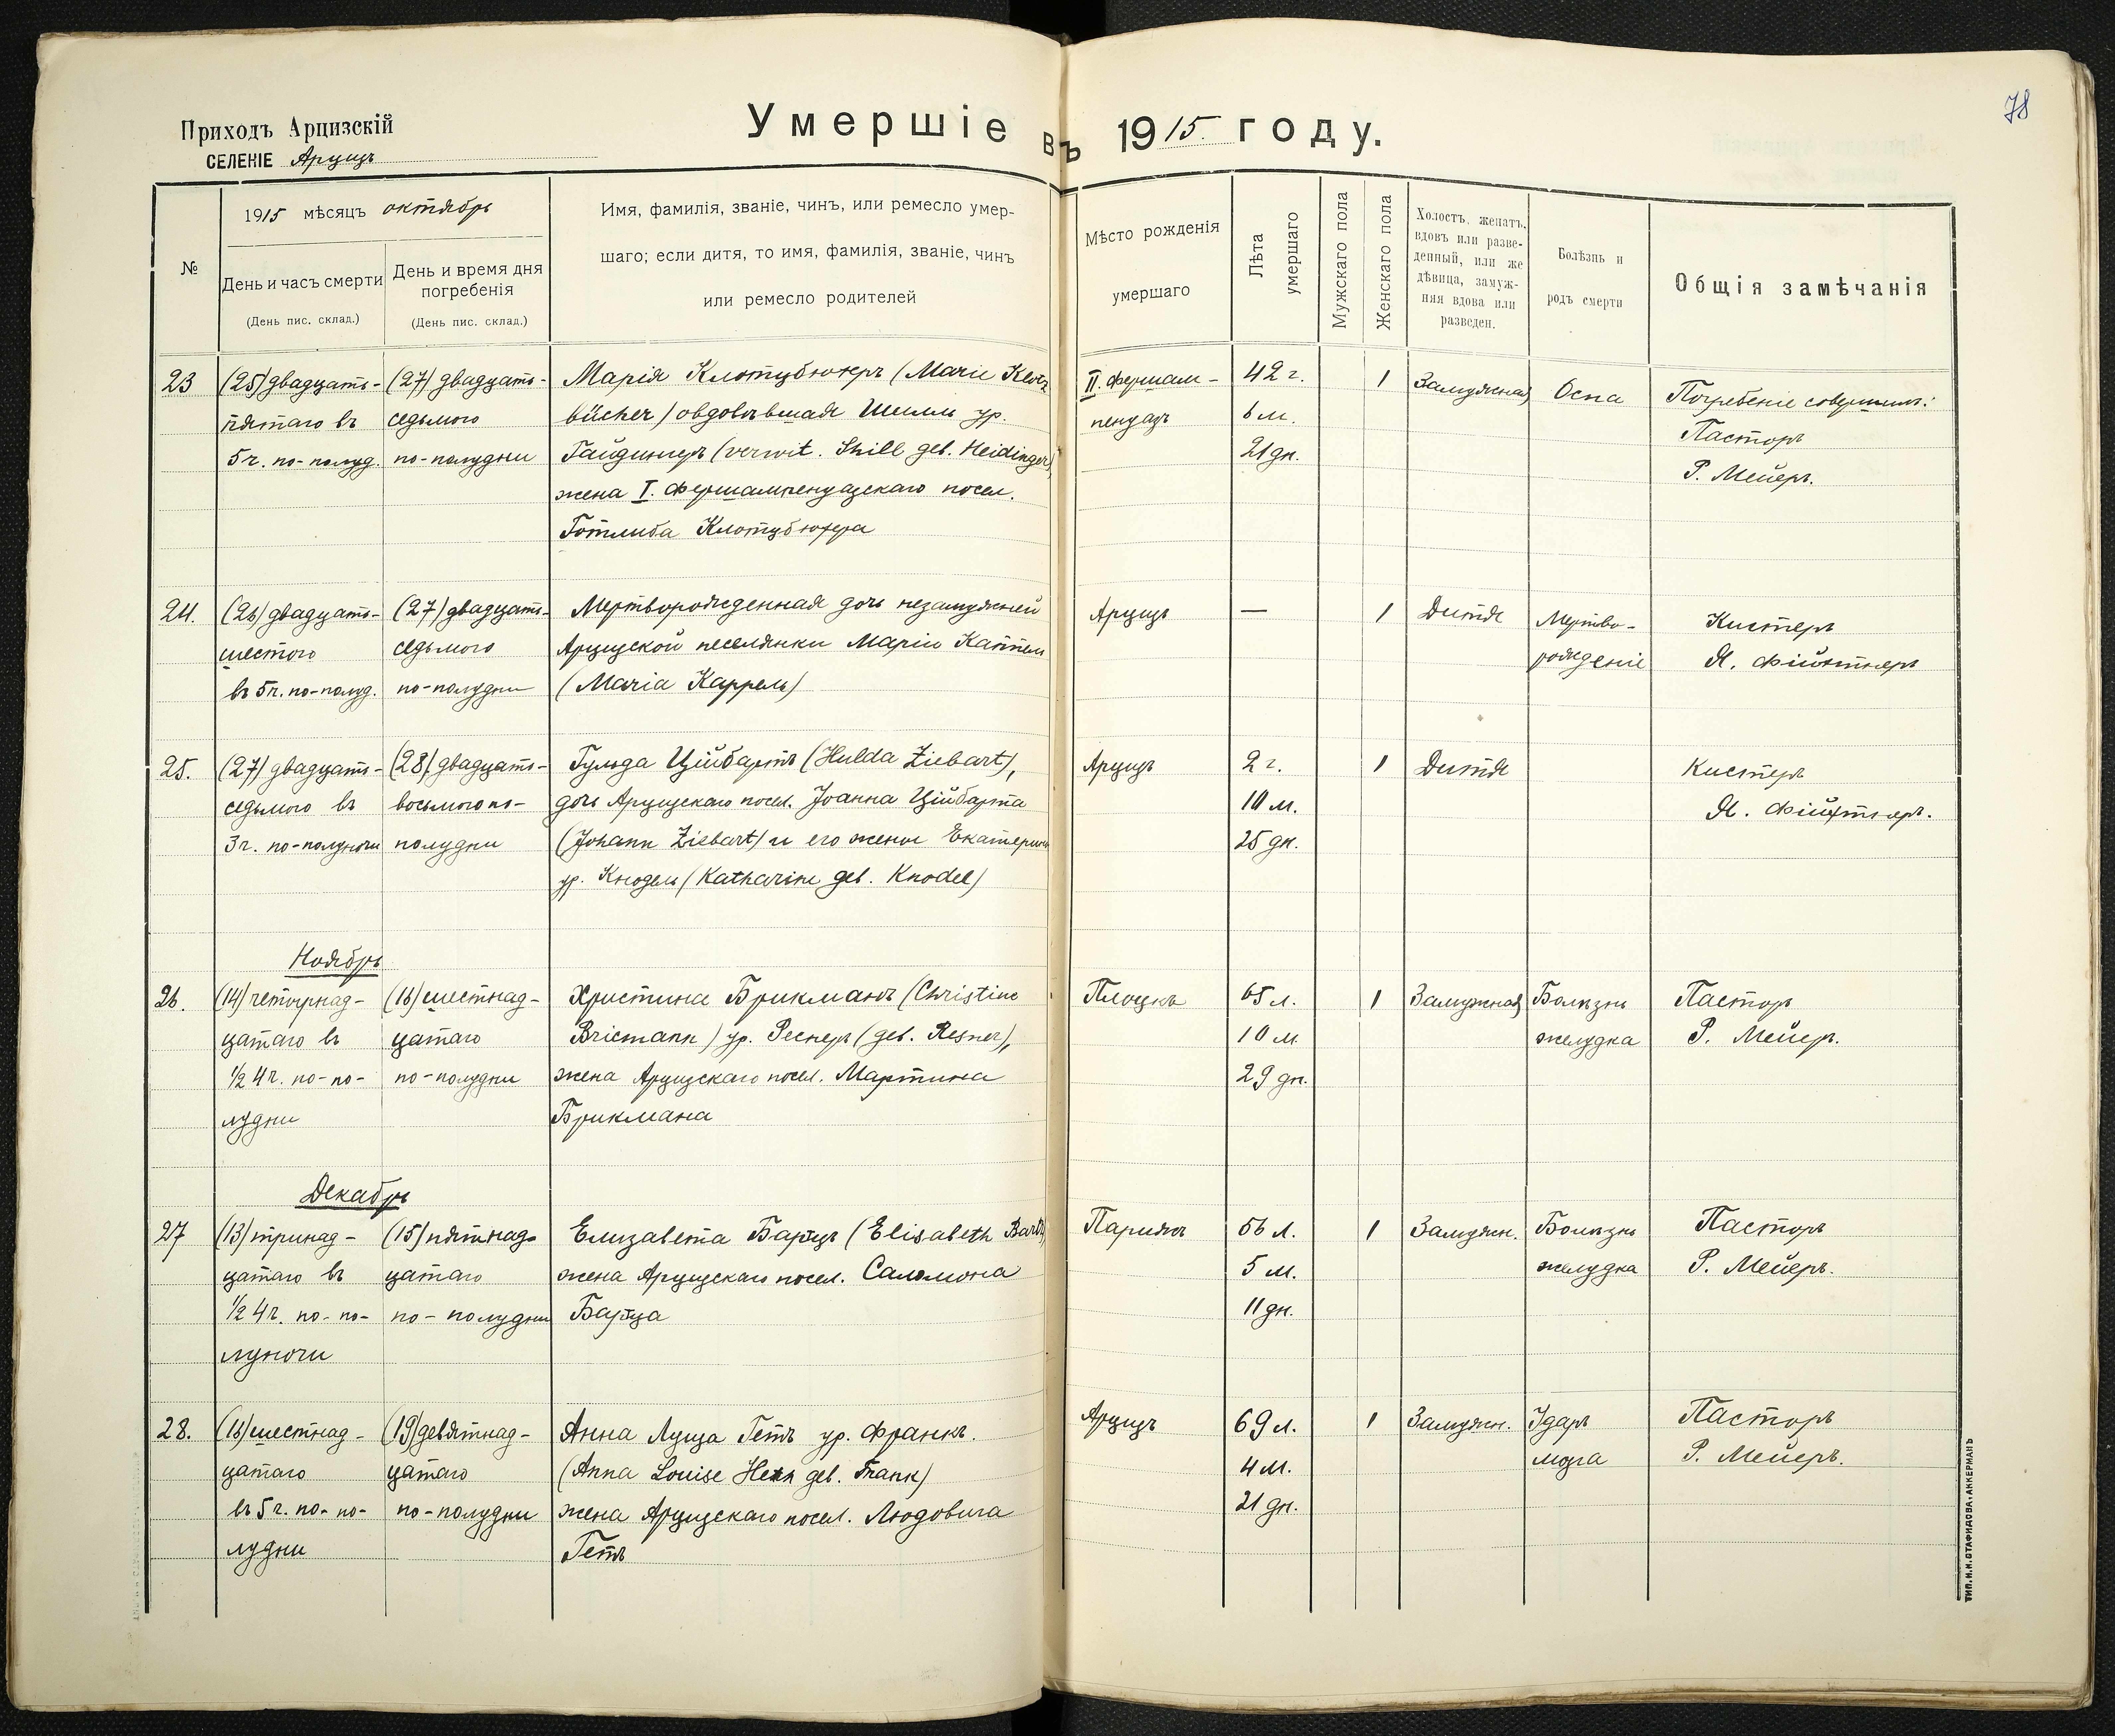 78
Приходъ Арцизскій
СЕЛЕНІЕ Арцизъ
Умершіе въ 1915. году.
№
1915 мѣсяцъ октябрь
День и часъ смерти
(День пис. склад.)
День и время дня
погребенія
(День пис. склад.)
Имя, фамилія, званіе, чинъ, или ремесло умер-
шаго; если дитя, то имя, фамилія, званіе, чинъ
или ремесло родителей
Мѣсто рожденія
умершаго
Лѣта
умершаго
Мужскаго пола
Женскаго пола
Холостъ, женатъ,
вдовъ или разве-
денный, или же
дѣвица, замуж-
няя вдова или
разведен.
Болѣзнь и
родъ смерти
Общія замѣчанія
23
(25) двадцать-
пятаго въ
5 ч. по-полуд.
(27) двадцать-
седьмого
по-полудни
Марія Клотцбюхеръ (Marie Klotz
bücher) овдовѣвшая Шилль ур.
Гайдингеръ (verwit. Shill geb. Heidinger)
жена I. Фершампенуазскаго посел.
Готлиба Клотцбюхера
II. Фершам-
пенуазъ
42 г.
6 м.
21 дн.
1
Замужняя
Оспа
Погребеніе совершилъ:
Пасторъ
Р. Мейеръ.
24.
(26) двадцать-
шестого
въ 5 ч. по-полуд.
(27) двадцать-
седьмого
по-полудни
Мертворожденная дочь незамужней
Арцизской поселянки Маріи Каппель
(Maria Каррель)
Арцизъ
—
1
Дитя
Мертво-
рожденіе
Кистеръ
Я.
25.
(27) двадцать-
седьмого въ
3 ч. по-полуночи
(28) двадцать-
восьмого по-
полудни
Гульда Ційбартъ (Hulda Ziebart),
дочь Арцизскаго посел. Іоанна Ційбарта
(Johann Ziebart) и его жены Екатерины
ур. Кнодель (Katharine geb. Knodel)
Арцизъ
2 г.
10 м.
25 дн.
1
Дитя
Кистеръ
Я.
Ноябрь
26.
(14) четырнад-
цатаго въ
½ 4 ч. по-по-
лудни
(16) шестнад-
цатаго
по-полудни
Христина Брикманъ (Christine
Bricmann) ур. Реснеръ (geb. Resner),
жена Арцизскаго посел. Мартина
Брикмана
Плоцкъ
65 л.
10 м.
29 дн.
1
Замужняя
Болѣзнь
желудка
Пасторъ
Р. Мейеръ.
Декабрь
27
(13) тринад-
цатаго въ
½ 4 ч. по-по-
луночи
(15) пятнад-
цатаго
по-полудни
Елизавета Барцъ (Elisabeth Bartz)
жена Арцизскаго посел. Саломона
Барца
Парижъ
56 л.
5 м.
11 дн.
1
Замужн.
Болѣзнь
желудка
Пасторъ
Р. Мейеръ.
28.
(16) шестнад-
цатаго
въ 5 ч. по-по-
лудни
(19) девятнад-
цатаго
по-полудни
Анна Луиза Гетъ ур. Франкъ.
(Anna Louise geb. Frank)
жена Арцизскаго посел. Людовига
Гетъ
Арцизъ
69 л.
4 м.
21 дн.
1
Замужн.
Ударъ
мозга
Пасторъ
Р. Мейеръ.
ТИП. И. Н. СТАФИДОВА, АККЕРМАНЪ